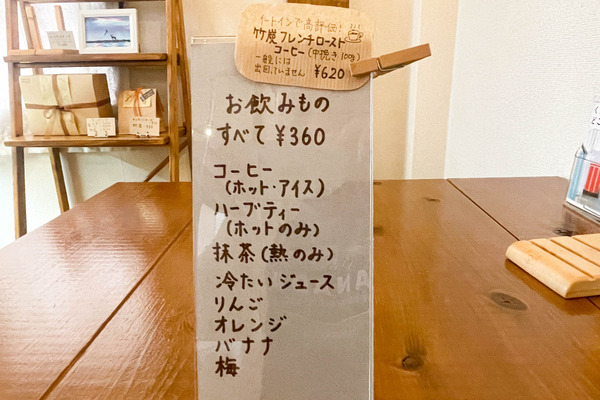 イートインで高評価!
竹炭フレンチロースト
コーヒー(中挽き100g)
一般には
出回っていません ¥620
お飲みもの
すべて¥360
コーヒー
(ホット・アイス)
ハーブティー
(ホットのみ)
抹茶(熱のみ)
冷たいジュース
りんご
オレンジ
バナナ
梅